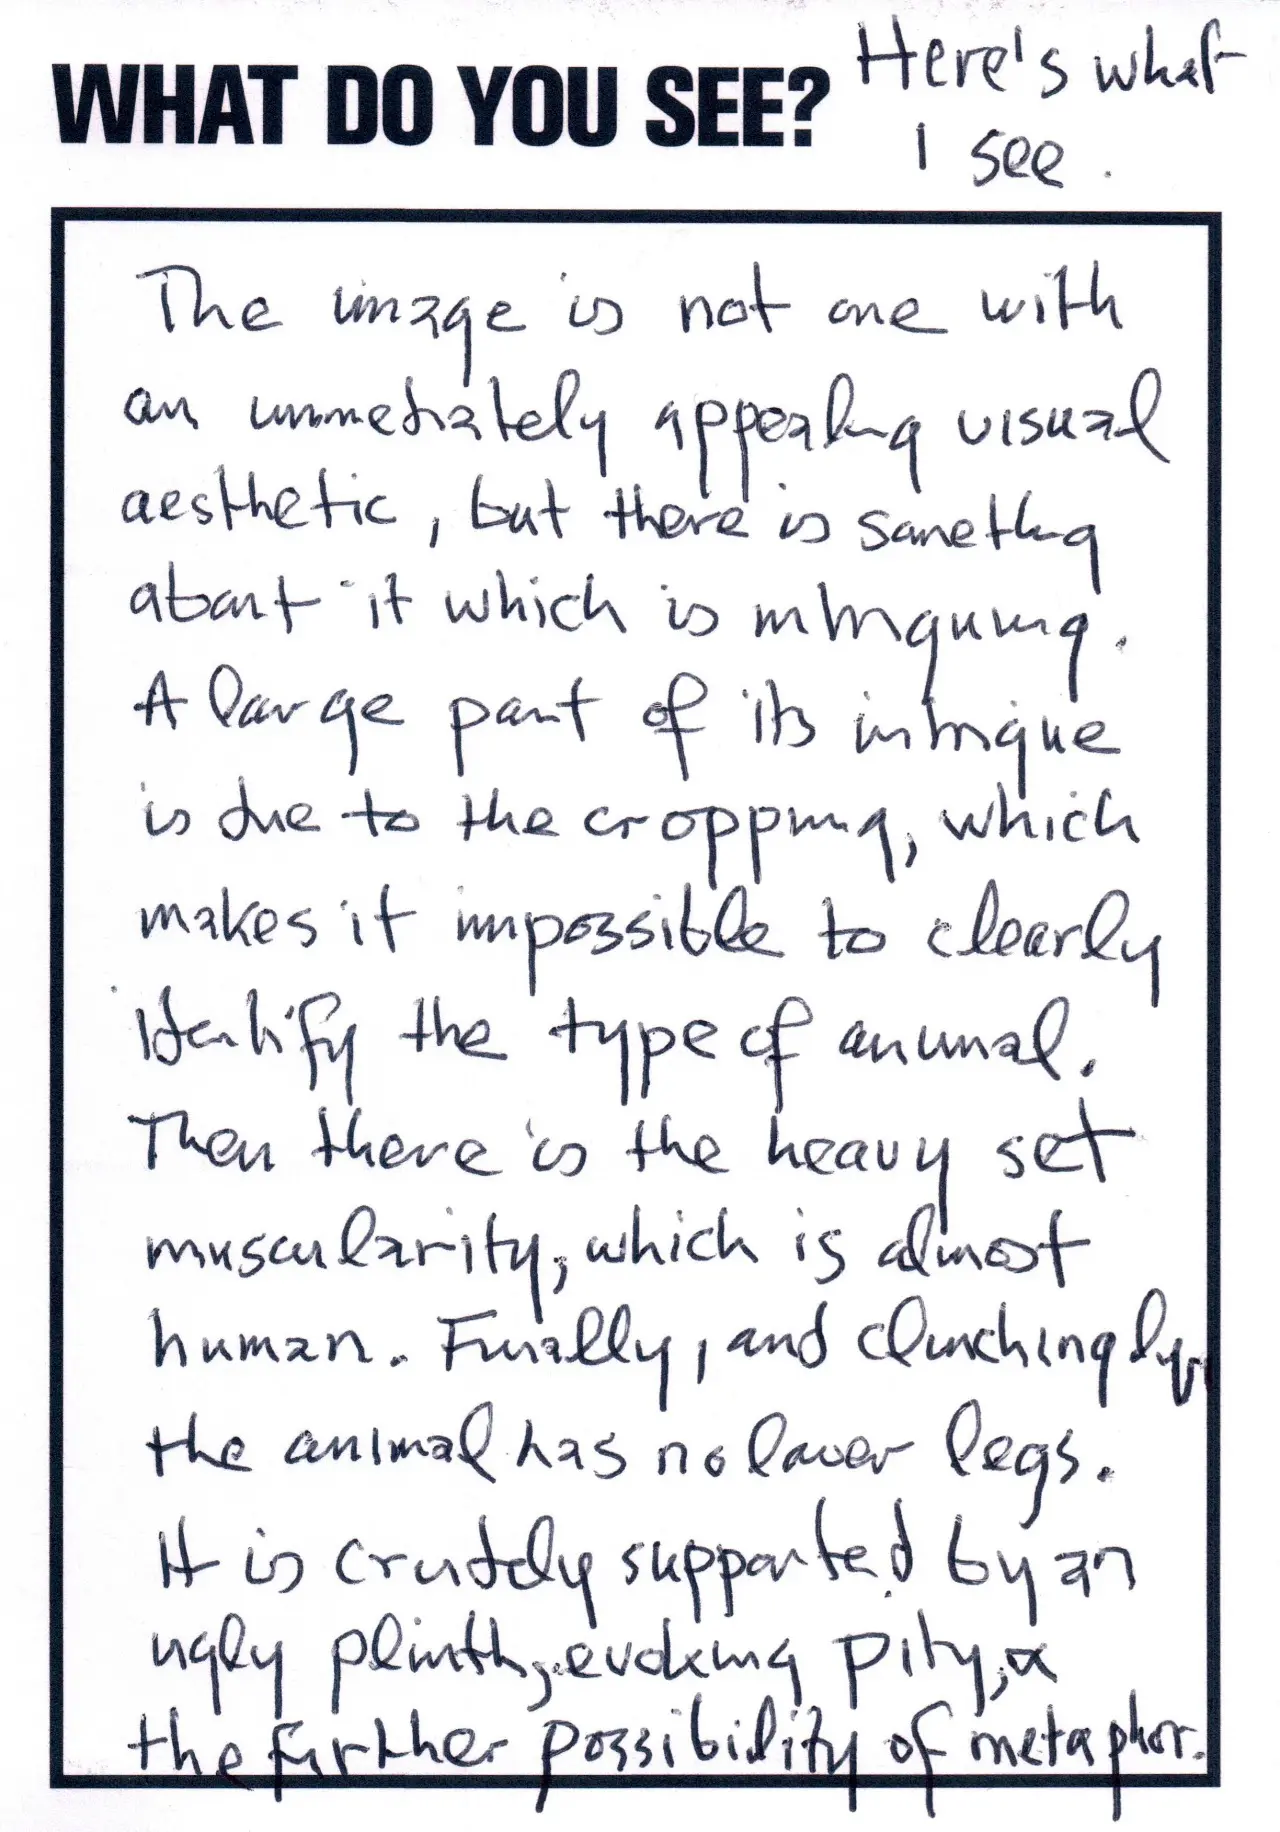 WHAT DO YOU SEE? Here's what
I see.
The image is not one with
an immediately appealing visual
aesthetic, but there is something
about it which is intriguing.
A large part of its intrigue
is due to the cropping, which
makes it impossible to clearly
identify the type of animal.
Then there is the heavy set
muscularity, which is almost
human. Finally, and clinchingly,
the animal has no lower legs.
It is crudely supported by an
ugly plinth, evoking pity, &
the further possibility of metaphor.